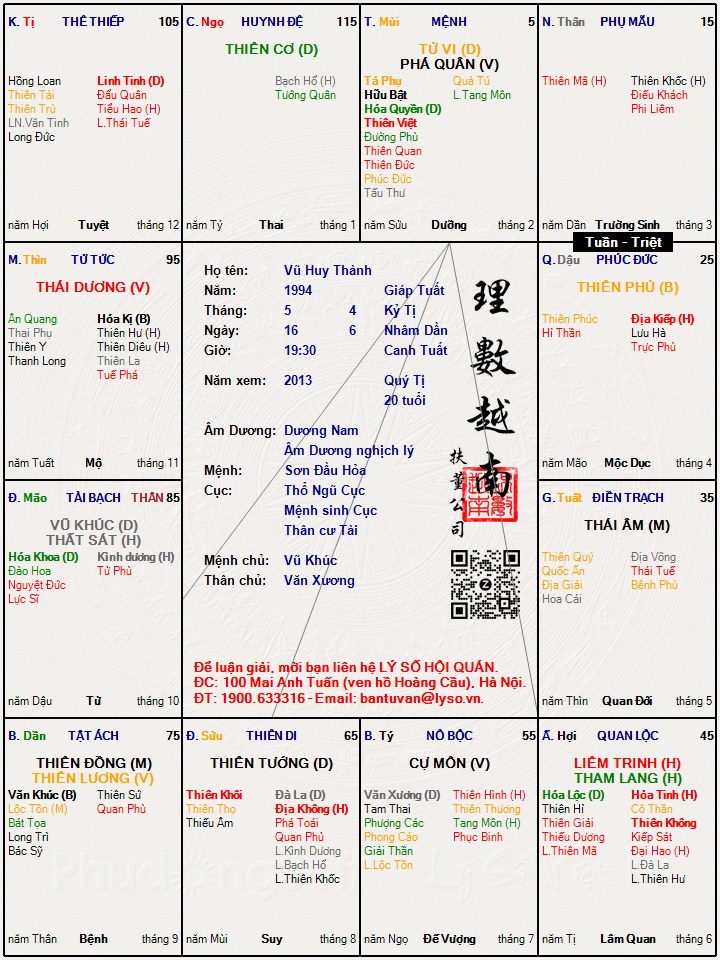 K. Tị THÊ THIẾP 105
Hồng Loan
Thiên Tài
Thiên Trù
LN.Văn Tinh
Long Đức
Linh Tinh (D)
Đẩu Quân
Tiểu Hao (H)
L.Thái Tuế
năm Hợi Tuyệt tháng 12
C. Ngọ HUYNH ĐỆ 115
THIÊN CƠ (D)
Bạch Hổ (H)
Tướng Quân
năm Tý Thai tháng 1
T. Mùi MỆNH 5
TỬ VI (D)
PHÁ QUÂN (V)
Tả Phụ
Hữu Bật
Hóa Quyền (D)
Thiên Việt
Đường Phù
Thiên Quan
Thiên Đức
Phúc Đức
Tấu Thư
Quả Tú
L.Tang Môn
năm Sửu Dưỡng tháng 2
N. Thân PHỤ MẪU 15
Thiên Mã (H)
Thiên Khốc (H)
Điếu Khách
Phi Liêm
năm Dần Trường Sinh tháng 3
Tuần - Triệt
M. Thìn TỬ TỨC 95
THÁI DƯƠNG (V)
Ân Quang
Thai Phụ
Thiên Y
Thanh Long
Hóa Kị (B)
Thiên Hư (H)
Thiên Diêu (H)
Thiên La
Tuế Phá
năm Tuất Mộ tháng 11
Họ tên: Vũ Huy Thành
Năm: 1994 Giáp Tuất
Tháng: 5 4 Kỷ Tị
Ngày: 16 6 Nhâm Dần
Giờ: 19:30 Canh Tuất
Năm xem: 2013 Quý Tị
20 tuổi
Âm Dương: Dương Nam
Âm Dương nghịch lý
Mệnh: Sơn Đầu Hỏa
Cục: Thổ Ngũ Cục
Mệnh sinh Cục
Thân cư Tài
Mệnh chủ: Vũ Khúc
Thân chủ: Văn Xương
理數越南
扶董公司
Để luận giải, mời bạn liên hệ LÝ SỐ HỘI QUÁN.
ĐC: 100 Mai Anh Tuấn (ven hồ Hoàng Cầu), Hà Nội.
ĐT: 1900.633316 - Email: bantuvan@lyso.vn.
Q. Dậu PHÚC ĐỨC 25
THIÊN PHỦ (B)
Thiên Phúc
Hỉ Thần
Địa Kiếp (H)
Lưu Hà
Trực Phù
năm Mão Mộc Dục tháng 4
Đ. Mão TÀI BẠCH THÂN 85
VŨ KHÚC (D)
THẤT SÁT (H)
Hóa Khoa (D)
Đào Hoa
Nguyệt Đức
Lực Sĩ
Kình dương (H)
Tử Phù
năm Dậu Tử tháng 10
G. Tuất ĐIỀN TRẠCH 35
THÁI ÂM (M)
Thiên Quý
Quốc Ấn
Địa Giải
Hoa Cái
Địa Võng
Thái Tuế
Bệnh Phù
năm Thìn Quan Đới tháng 5
B. Dần TẬT ÁCH 75
THIÊN ĐỒNG (M)
THIÊN LƯƠNG (V)
Văn Khúc (B)
Lộc Tồn (M)
Bát Tọa
Long Trì
Bác Sỹ
Thiên Sứ
Quan Phù
năm Thân Bệnh tháng 9
Đ. Sửu THIÊN DI 65
THIÊN TƯỚNG (D)
Thiên Khôi
Thiên Thọ
Thiếu Âm
Đà La (D)
Địa Không (H)
Phá Toái
Quan Phủ
L.Kình Dương
L.Bạch Hổ
L.Thiên Khốc
năm Mùi Suy tháng 8
B. Tý NÔ BỘC 55
CỰ MÔN (V)
Văn Xương (D)
Tam Thai
Phượng Các
Phong Cáo
Giải Thần
L.Lộc Tồn
Thiên Hình (H)
Thiên Thương
Tang Môn (H)
Phục Binh
năm Ngọ Đế Vượng tháng 7
Ấ. Hợi QUAN LỘC 45
LIÊM TRINH (H)
THAM LANG (H)
Hóa Lộc (D)
Thiên Hỉ
Thiên Giải
Thiếu Dương
L.Thiên Mã
Hỏa Tinh (H)
Cô Thần
Thiên Không
Kiếp Sát
Đại Hao (H)
L.Đà La
L.Thiên Hư
năm Tị Lâm Quan tháng 6